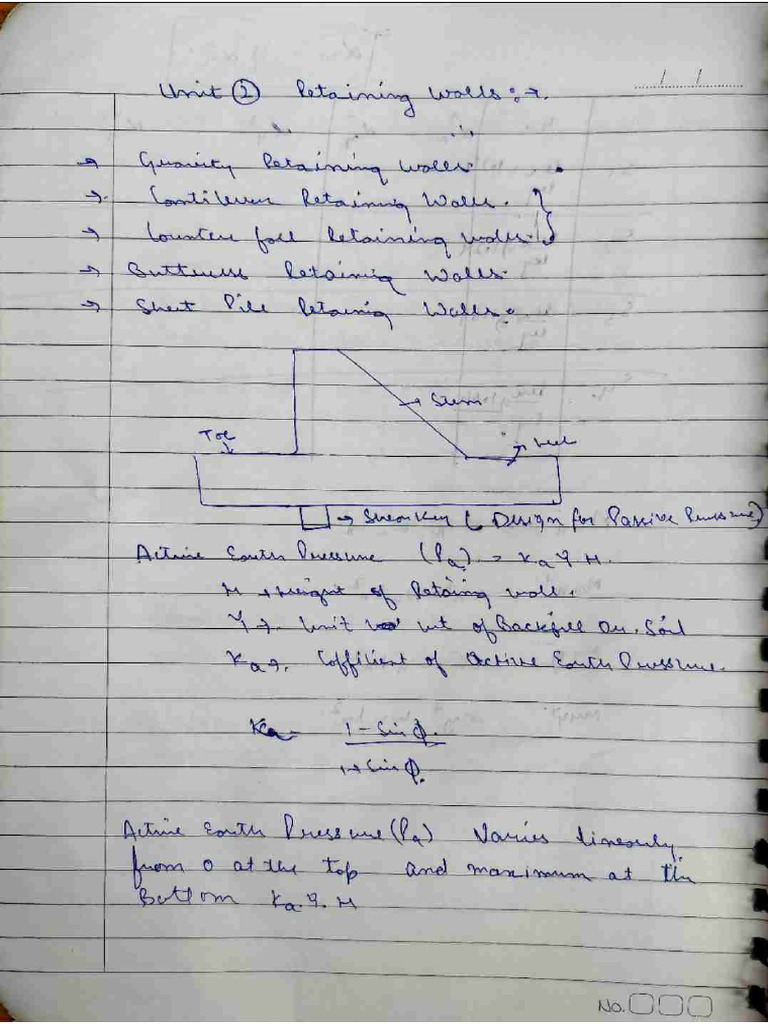 Unit ② Retaining Walls :→.
/ /
→ Gravity Retaining Walls
→ Cantilever Retaining Walls. }
→ Counter fall Retaining walls. }
→ Butteress Retaining Walls
→ Sheet Pile Retaining Walls.
→ Stem
Toe
heel
→ Shear Key ( Design for Passive Pressure)
Active Earth Pressure (Pa) = Ka γ H.
H → Height of Retaing wall.
γ →. Unit wt of Backfill Or. Soil
Ka →. Cofficient of Active Earth Pressure.
Ka = 1 - Sin φ.
1 + Sin φ.
Active Earth Pressure (Pa) Varies linearly.
from 0 at the top and maximum at the
Bottom Ka. γ. H
No.